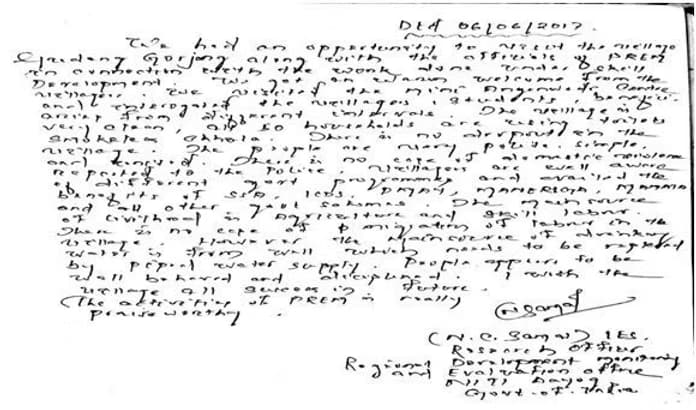 Dt 06/06/2017.
We had an opportunity to visit the village
Gorjang along with the officials of PREM
in connection with the work done under skill
Development. We got an warm welcome from the
villagers. We visited the mini Anganwadi Centre
and interogated the villagers, students, benefici-
aries from different intervals. The village is
very clean, all 50 households are using toilets
smokeless Chhula. There is no dropout in the
village. The people are very polite, simple,
and united. There is no case of domestic violence
reported to the Police. Villagers are well aware
of different govt programmes and availed the
benefits of SSA, ICDS, PMAY, MGNREGA, MAMATA
and all other govt schemes. The main source
of livlihood is Agriculture and skill labour.
There is no case of migration of labour in the
village. However the main source of drinking
water is from well which needs to be replaced
by piped water supply. People appears to be
well behaved and disciplined. I wish the
village all success in future.
(The activities of PREM is really
praiseworthy.
(N.C. Samal) IES.
Research Officer
Regional Development Monitoring
and Evaluation office
NITI Aayog
Govt. of India